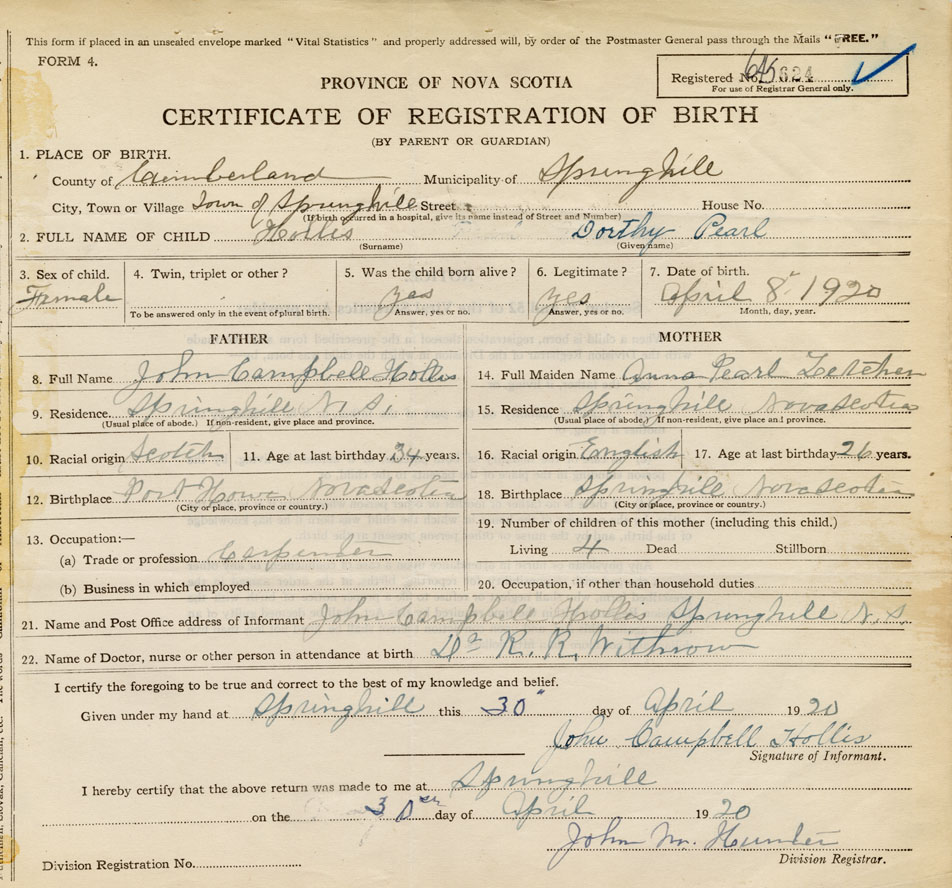 This form if placed in an unsealed envelope marked "Vital Statistics" and properly addressed will, by order of the Postmaster General pass through the Mails "FREE."
FORM 4.
Registered No. 624
For use of Registrar General only.
PROVINCE OF NOVA SCOTIA
CERTIFICATE OF REGISTRATION OF BIRTH
(BY PARENT OR GUARDIAN)
1. PLACE OF BIRTH.
County of Cumberland Municipality of Springhill
City, Town or Village Town of Springhill Street House No.
(If birth occurred in a hospital, give its name instead of Street and Number)
2. FULL NAME OF CHILD Hollis Dorthy Pearl
(Surname) (Given name)
3. Sex of child. 4. Twin, triplet or other? 5. Was the child born alive? 6. Legitimate? 7. Date of birth.
Female yes yes April 8 1920
To be answered only in the event of plural birth. Answer, yes or no. Answer, yes or no. Month, day, year.
FATHER MOTHER
8. Full Name John Campbell Hollis
9. Residence. Springhill N.S.
(Usual place of abode.) If non-resident, give place and province.
10. Racial origin Scotch 11. Age at last birthday 34 years.
12. Birthplace Port Howe Nova Scotia
(City or place, province or country.)
13. Occupation:—
(a) Trade or profession Carpenter
(b) Business in which employed
14. Full Maiden Name Anna Pearl
15. Residence Springhill Nova Scotia
(Usual place of abode.) If non-resident, give place and province.
16. Racial origin English 17. Age at last birthday 26 years.
18. Birthplace Springhill Nova Scotia
(City or place, province or country.)
19. Number of children of this mother (including this child.)
Living 4 Dead Stillborn
20. Occupation, if other than household duties
21. Name and Post Office address of Informant John Campbell Hollis Springhill N.S.
22. Name of Doctor, nurse or other person in attendance at birth Dr R. R. Withrow
I certify the foregoing to be true and correct to the best of my knowledge and belief.
Given under my hand at Springhill this 30 day of April 1920
John Campbell Hollis
Signature of Informant.
I hereby certify that the above return was made to me at Springhill
on the 30 day of April 1920
John M. Hunter
Division Registration No. Division Registrar.